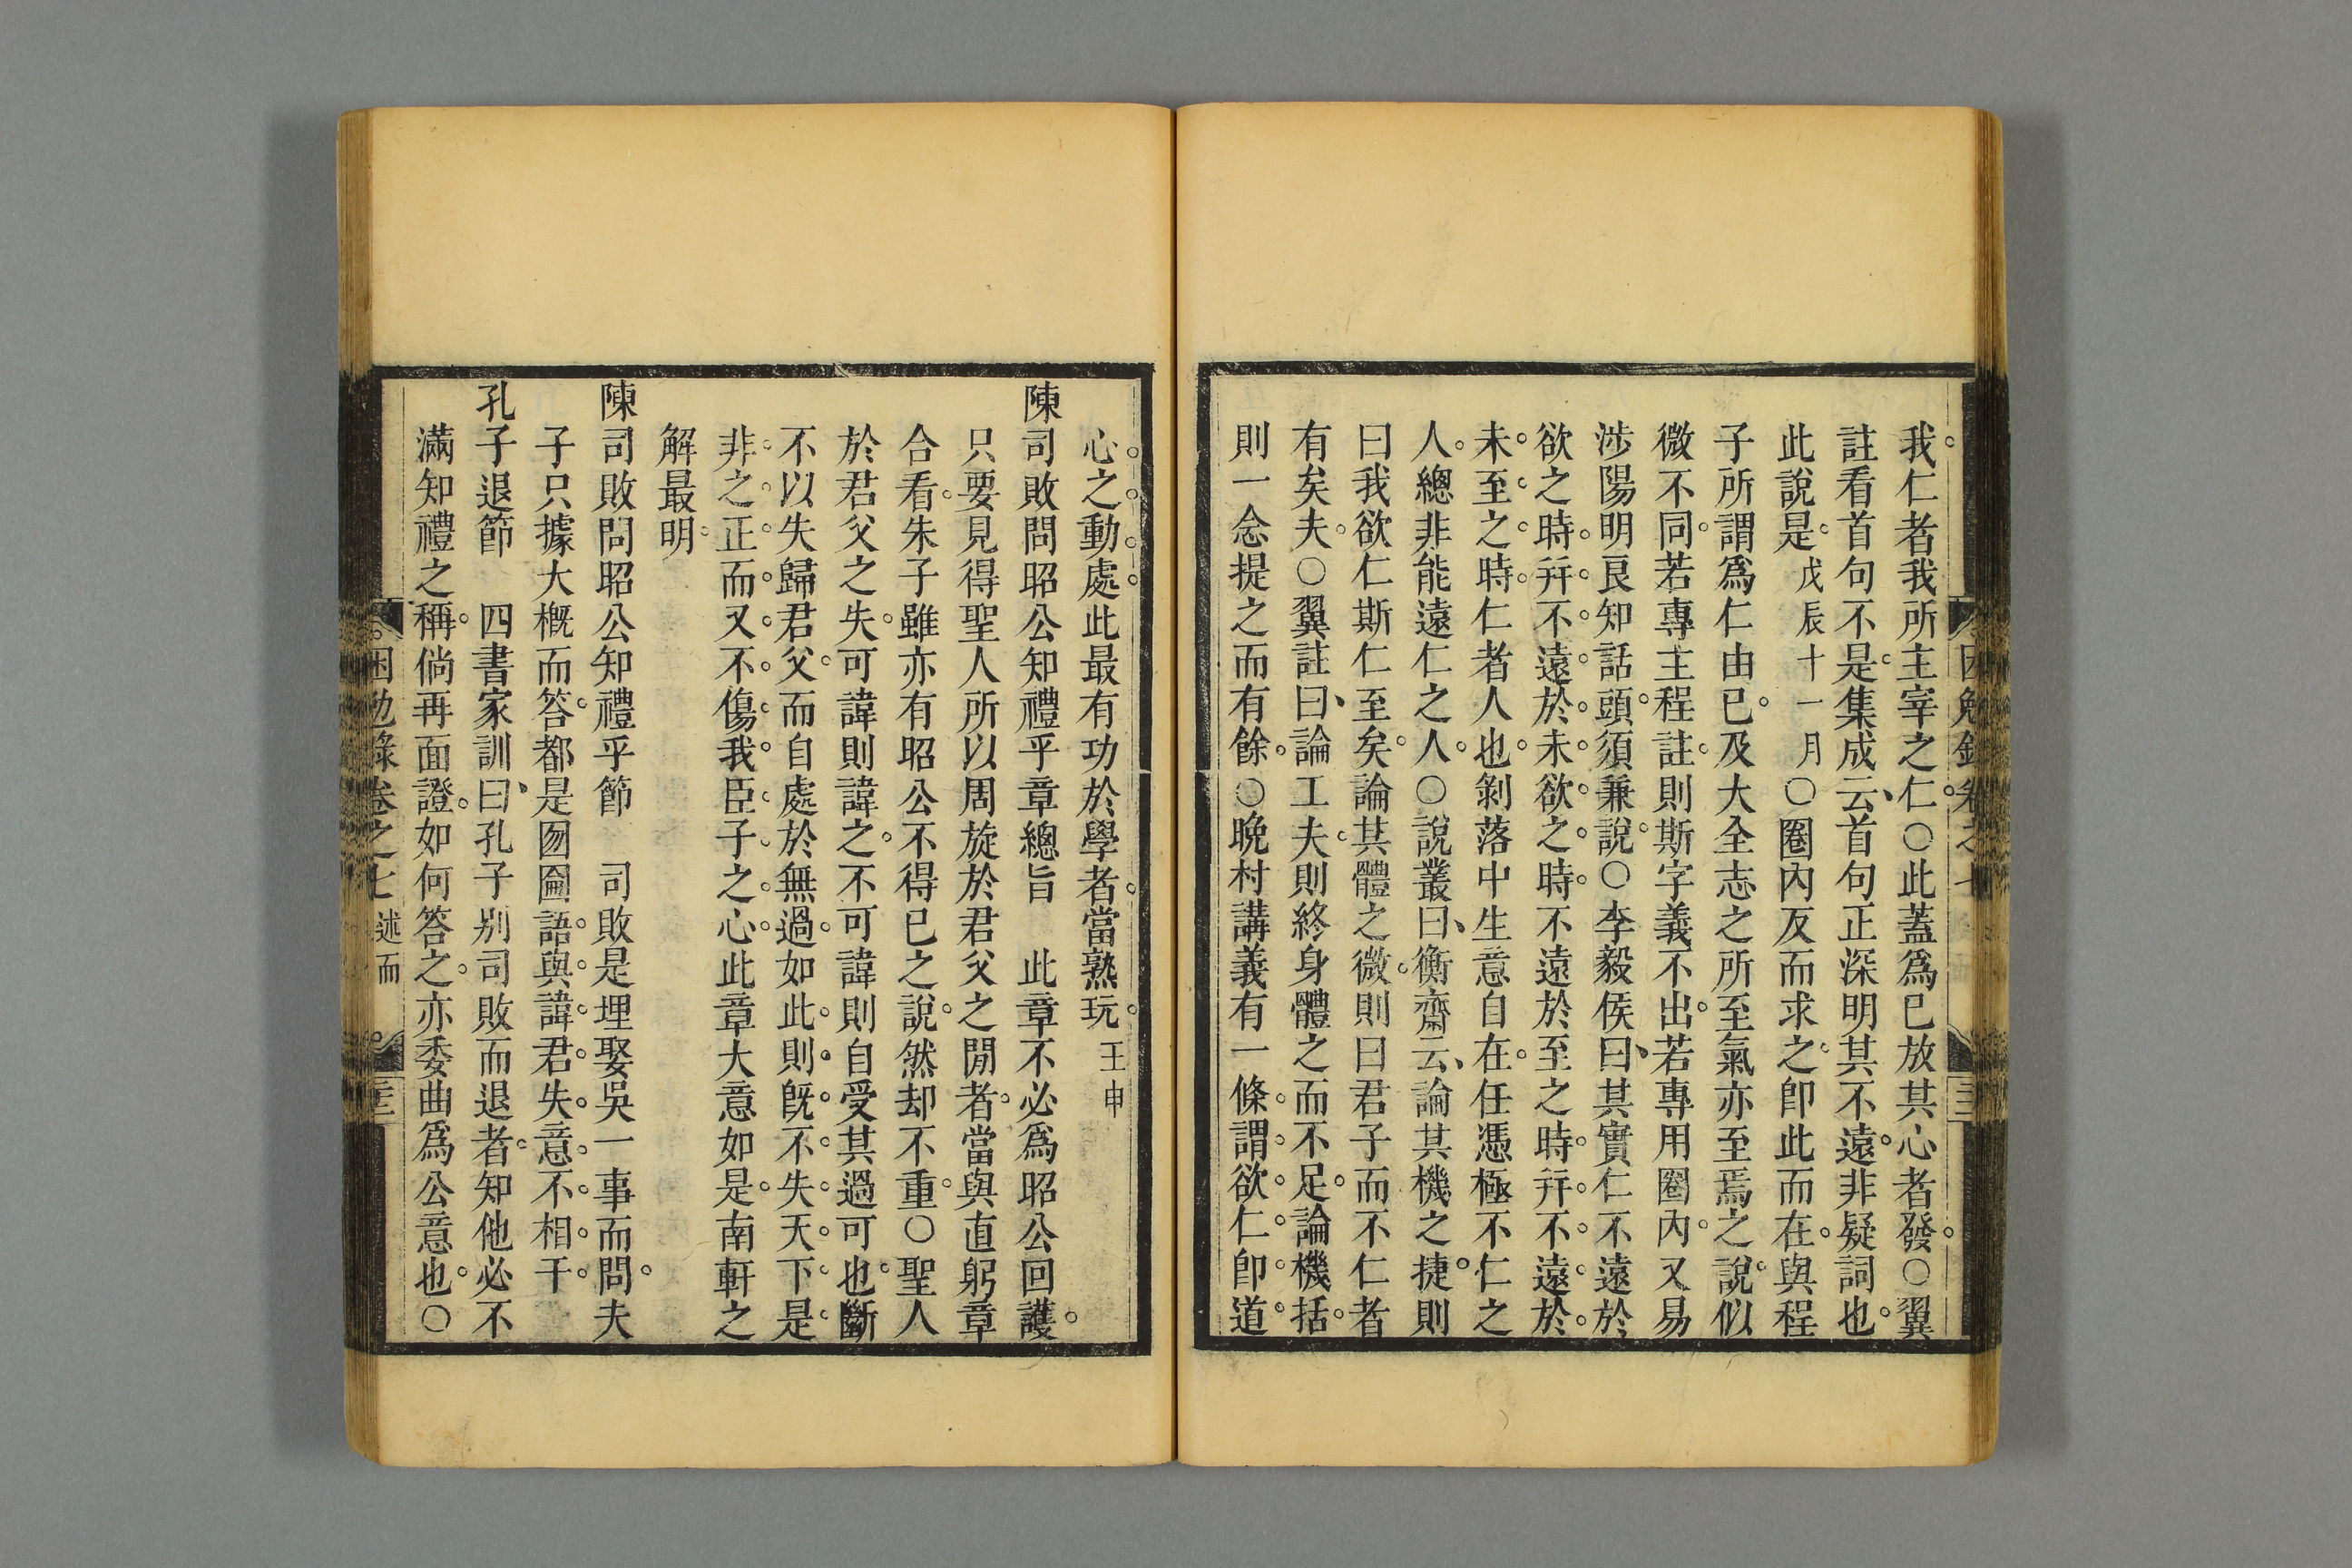 我仁者我所主宰之仁○此蓋爲已放其心者發○翼
註看首句不是集成云首句正深明其不遠非疑詞也
此說是戊辰十一月○圈內反而求之卽此而在與程
子所謂爲仁由已及大全志之所至氣亦至焉之說似
微不同若專主程註則斯字義不出若專用圈內又易
涉陽明良知話頭須兼說○李毅侯曰其實仁不遠於
欲之時幷不遠於未欲之時不遠於至之時幷不遠於
未至之時仁者人也剝落中生意自在任憑極不仁之
人總非能遠仁之人○說叢曰衡齋云論其機之捷則
曰我欲仁斯仁至矣論其體之微則曰君子而不仁者
有矣夫○翼註曰論工夫則終身體之而不足論機括
則一念提之而有餘○晚村講義有一條謂欲仁卽道
心之動處此最有功於學者當熟玩壬申
陳司敗問昭公知禮乎章總旨　此章不必爲昭公回護
只要見得聖人所以周旋於君父之閒者當與直躬章
合看朱子雖亦有昭公不得已之說然却不重○聖人
於君父之失可諱則諱之不可諱則自受其過可也斷
不以失歸君父而自處於無過如此則旣不失天下是
非之正而又不傷我臣子之心此章大意如是南軒之
解最明
陳司敗問昭公知禮乎節　司敗是埋娶吳一事而問夫
子只據大槪而答都是囫圇語與諱君失意不相干
孔子退節　四書家訓曰孔子别司敗而退者知他必不
滿知禮之稱倘再面證如何答之亦委曲爲公意也○
困勉錄卷之七　述而